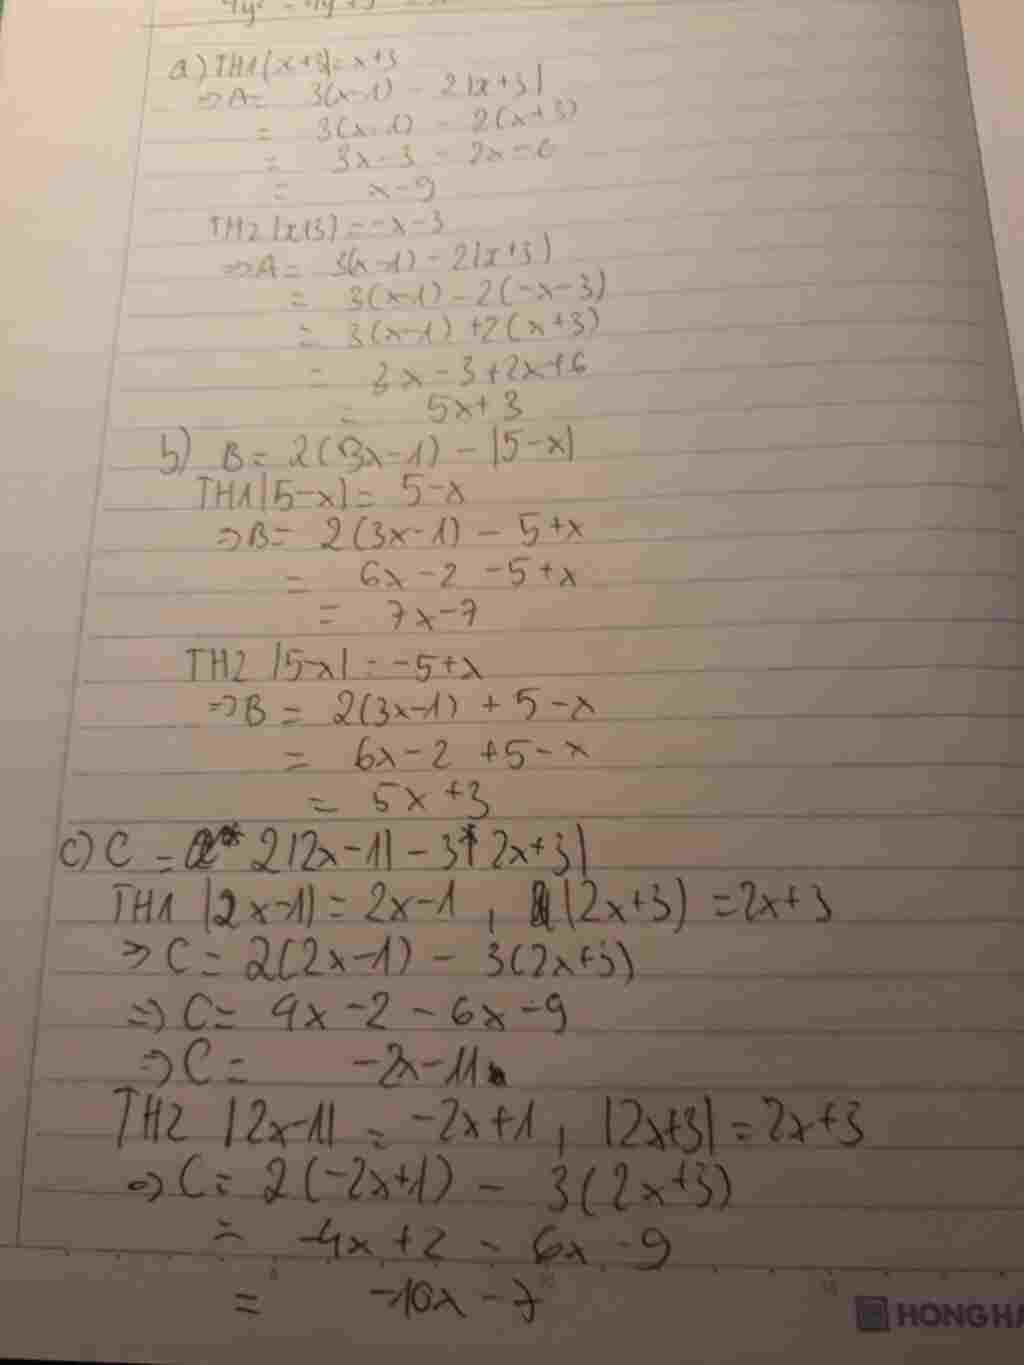 a) TH1 |x+3|=x+3
=> A= 3(x-1) - 2|x+3|
= 3(x-1) - 2(x+3)
= 3x-3 - 2x-6
= x-9
TH2 |x+3| = -x-3
=> A = 3(x-1) - 2|x+3|
= 3(x-1) - 2(-x-3)
= 3(x-1) +2(x+3)
= 3x - 3+2x+6
= 5x+3
b) B= 2(3x-1) - |5-x|
TH1 |5-x| = 5-x
=> B= 2(3x-1) - 5+x
= 6x-2 -5+x
= 7x-7
TH2 |5-x| = -5+x
=> B = 2(3x-1) + 5-x
= 6x-2 +5-x
= 5x+3
c) C = 2|2x-1| - 3|2x+3|
TH1 |2x-1| = 2x-1 , |2x+3| = 2x+3
=> C = 2(2x-1) - 3(2x+3)
=> C= 4x-2 - 6x-9
=> C= -2x-11
TH2 |2x-1| = -2x+1 , |2x+3| = 2x+3
=> C= 2(-2x+1) - 3(2x+3)
= -4x+2 - 6x-9
= -10x-7
HONG HA